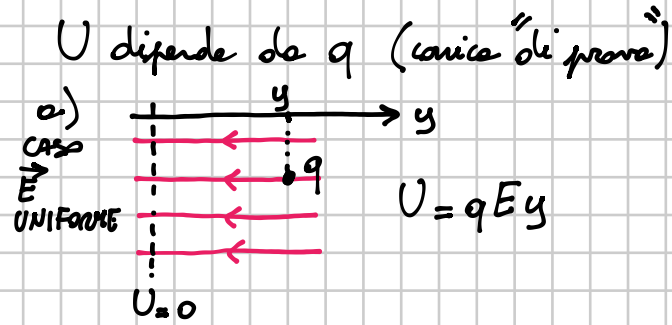 U dipende da q (carica "di prova")
a) y y
CASO
E q
UNIFORME U = qEy
U=0